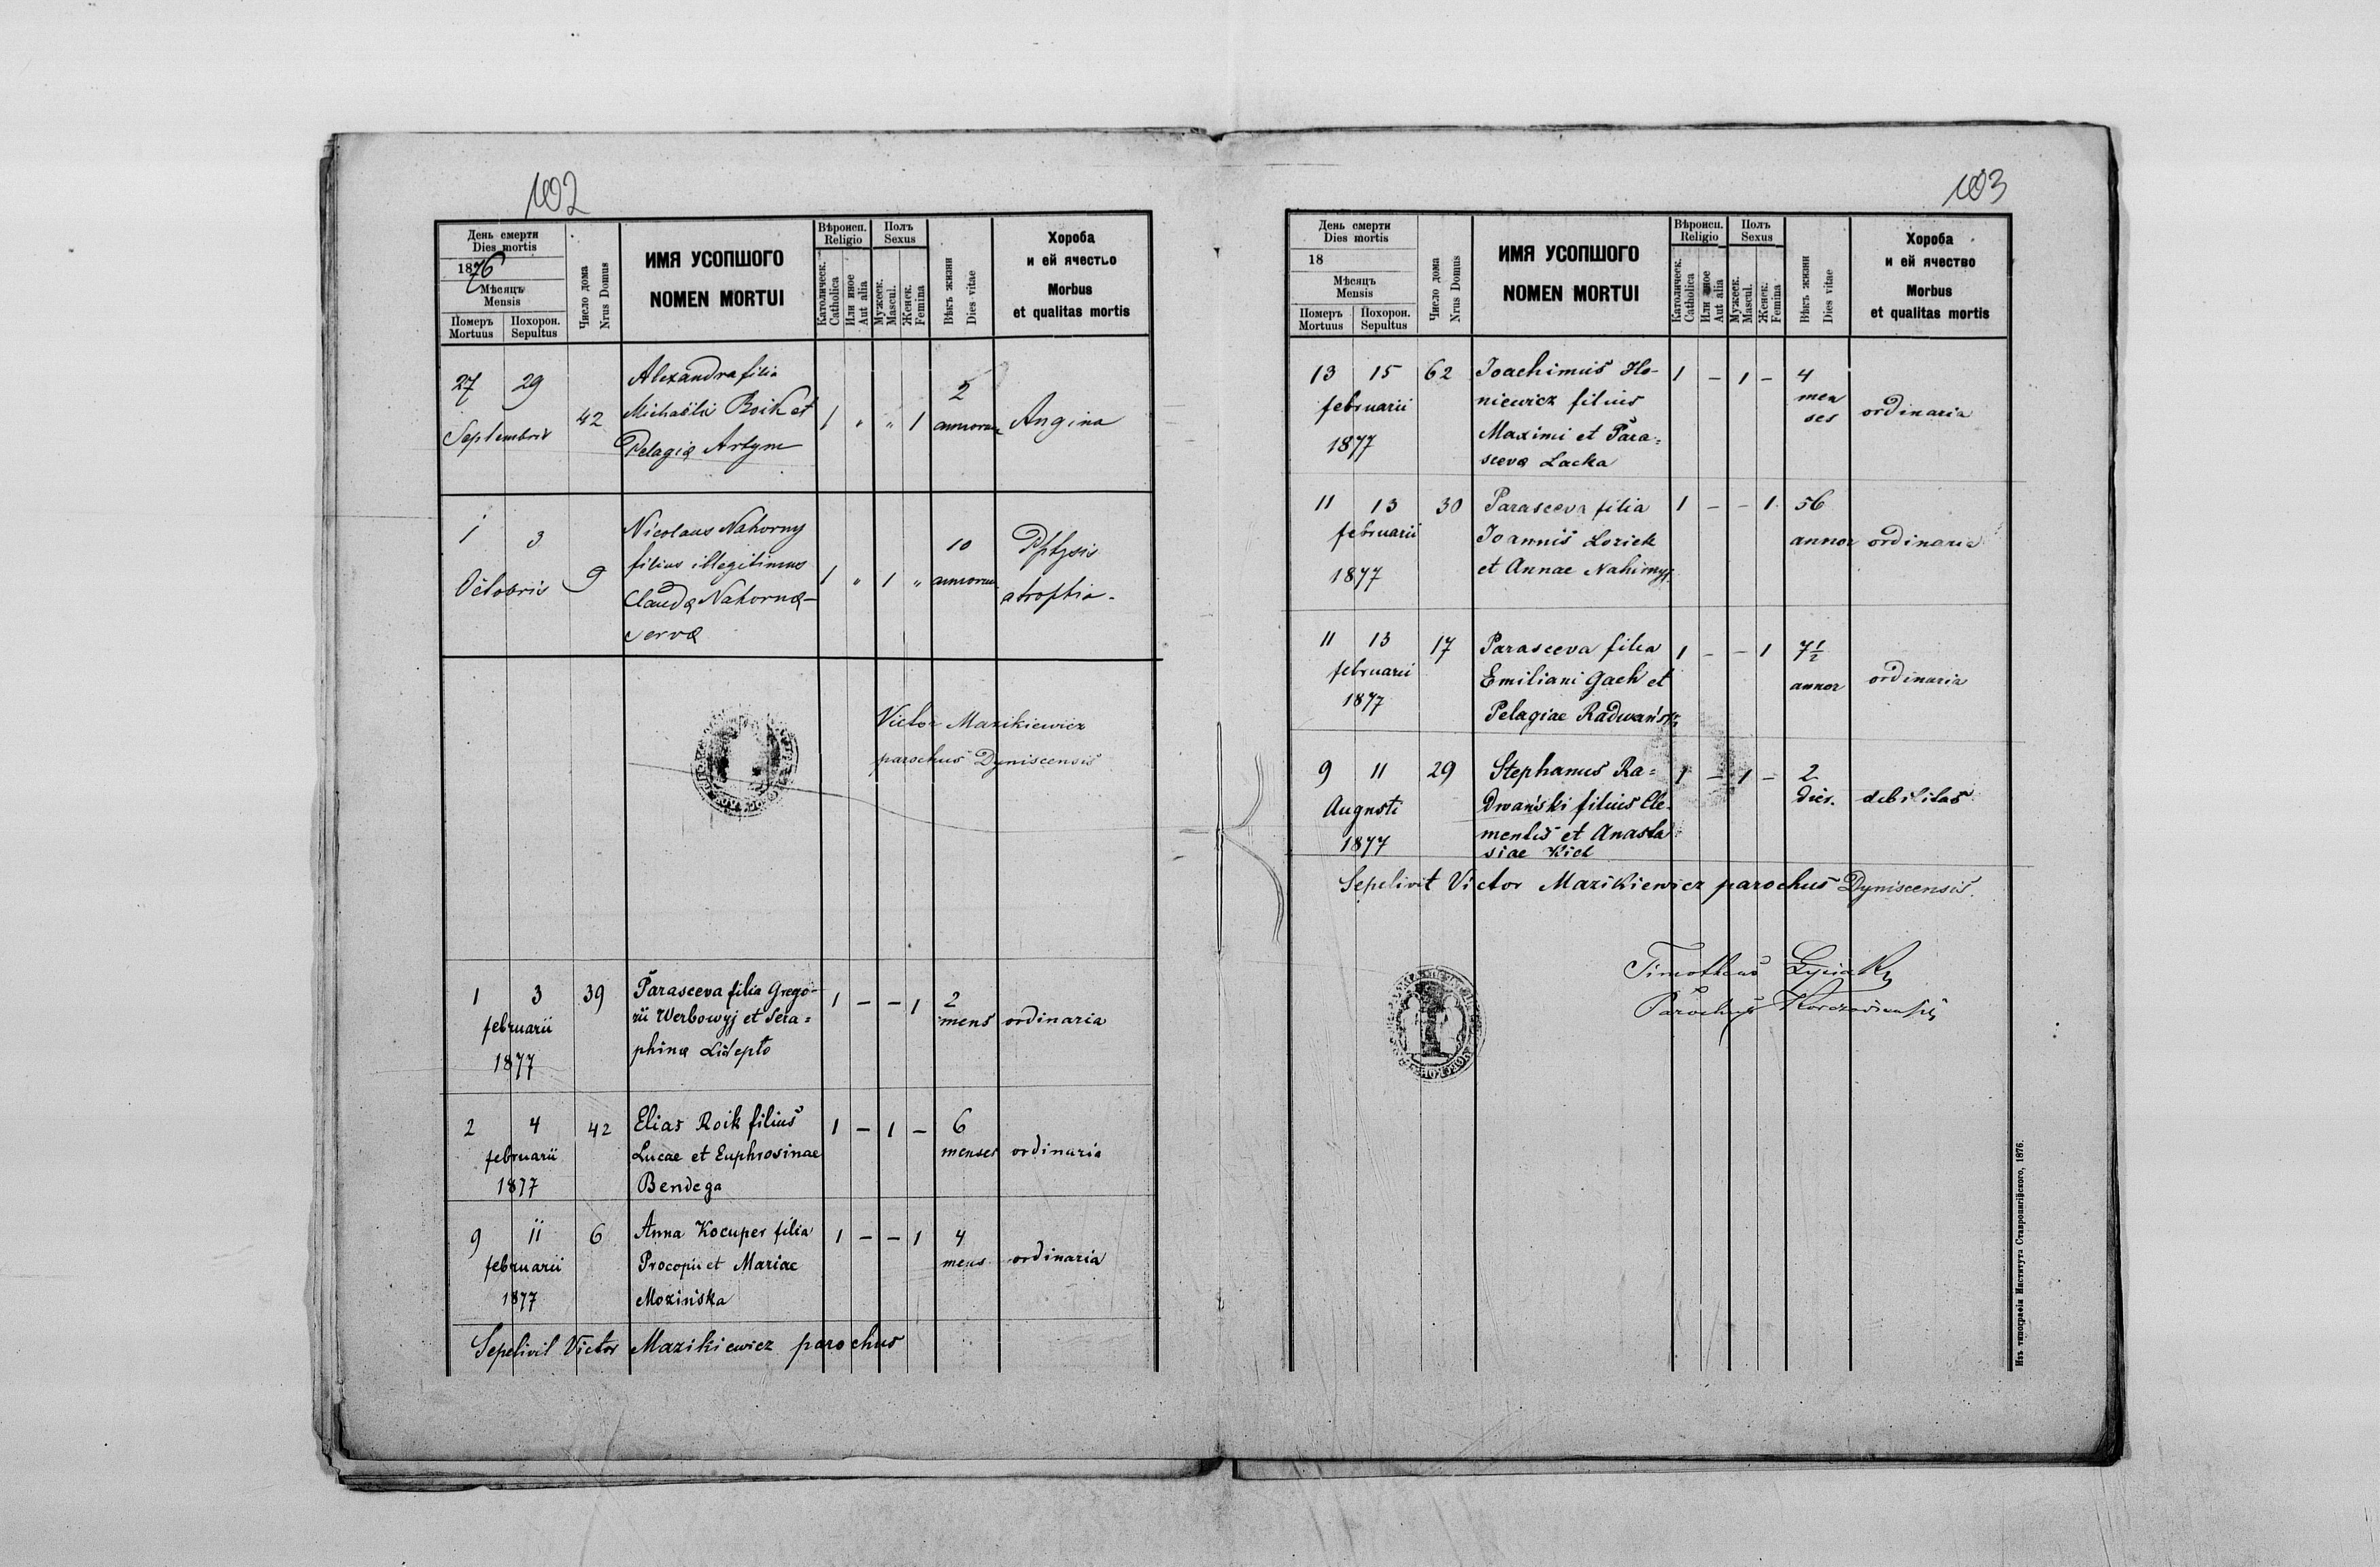 102
День смерти
Dies mortis
1876
Мѣсяцъ
Mensis
Померъ Похорон.
Mortuus Sepultus
Число дома
Nrus Domus
ИМЯ УСОПШОГО
NOMEN MORTUI
Вѣроисп.
Religio
Католическ.
Catholica
Или иное
Aut alia
Полъ
Sexus
Мужеск.
Mascul.
Женск.
Femina
Вѣкъ жизни
Dies vitae
Хороба
и ей ячество
Morbus
et qualitas mortis
27 29
Septembris
42
Alexandra filia
Michaëlis Roik et
Pelagiæ Artym
1 " " 1
2
annorum
Angina
1 3
Octobris
9
Nicolaus Nahorny
filius illegitimus
Claudæ Nahornæ -
servæ
1 " 1 "
10
annorum
atrophia.
Victor Mazikiewicz
parochus Dyniscensis
1 3 39
februarii
1877
Parasceva filia Grego-
rii Werbowyj et Sera=
phinæ
1 - - 1
2
mens
ordinaria
2 4 42
februarii
1877
Elias Roik filius
Lucae et Euphrosinae
Bendega
1 - 1 -
6
menses
ordinaria
9 11 6
februarii
1877
Anna Kocuper filia
Procopii et Mariae
Mozińska
1 - - 1
4
mens
ordinaria
Sepelivit Victor Mazikiewicz parochus
103
День смерти
Dies mortis
18
Мѣсяцъ
Mensis
Померъ Похорон.
Mortuus Sepultus
Число дома
Nrus Domus
ИМЯ УСОПШОГО
NOMEN MORTUI
Вѣроисп.
Religio
Католическ.
Catholica
Или иное
Aut alia
Полъ
Sexus
Мужеск.
Mascul.
Женск.
Femina
Вѣкъ жизни
Dies vitae
Хороба
и ей ячество
Morbus
et qualitas mortis
13 15 62
februarii
1877
Joachimus Ho-
niewicz filius
Maximi et Para=
scevæ Lacka
1 - 1 -
4
men
ses
ordinaria
11 13 30
februarii
1877
Parasceva filia
Joannis Loziek
et Annae Nahirnyj
1 - - 1
56
annor
ordinaria
11 13 17
februarii
1877
Parasceva filia
Emiliani Gach et
Pelagiae Radwańska
1 - - 1
7 1/2
annor
ordinaria
9 11 29
Augusti
1877
Stephanus Ra=
dwański filius Cle-
mentis et Anasta
siae Kich
1 - 1 -
2
dies.
debilitas
Sepelivit Victor Mazikiewicz parochus Dyniscensis.
Timotheus
Parochus
Изъ типографіи Института Ставропигійского, 1876.